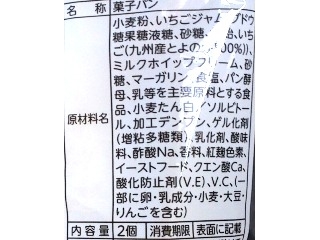 名 称 菓子パン
原材料名
小麦粉、いちごジャム、ブドウ
糖果糖液糖、砂糖、
いち
ご(九州産とよの
00%))、
ミルクホイップクリーム、砂
糖、マーガリン、食塩、パン酵
母、乳等を主要原料とする食
品、小麦たん白、ソルビトー
ル、加工デンプン、ゲル化剤
(増粘多糖類)、乳化剤、酸味
料、酢酸Na、香料、紅麹色素、
イーストフード、クエン酸Ca、
酸化防止剤(V.E)、V.C、(一
部に卵・乳成分・小麦・大豆・
りんごを含む)
内容量 2個 消費期限 表面に記載